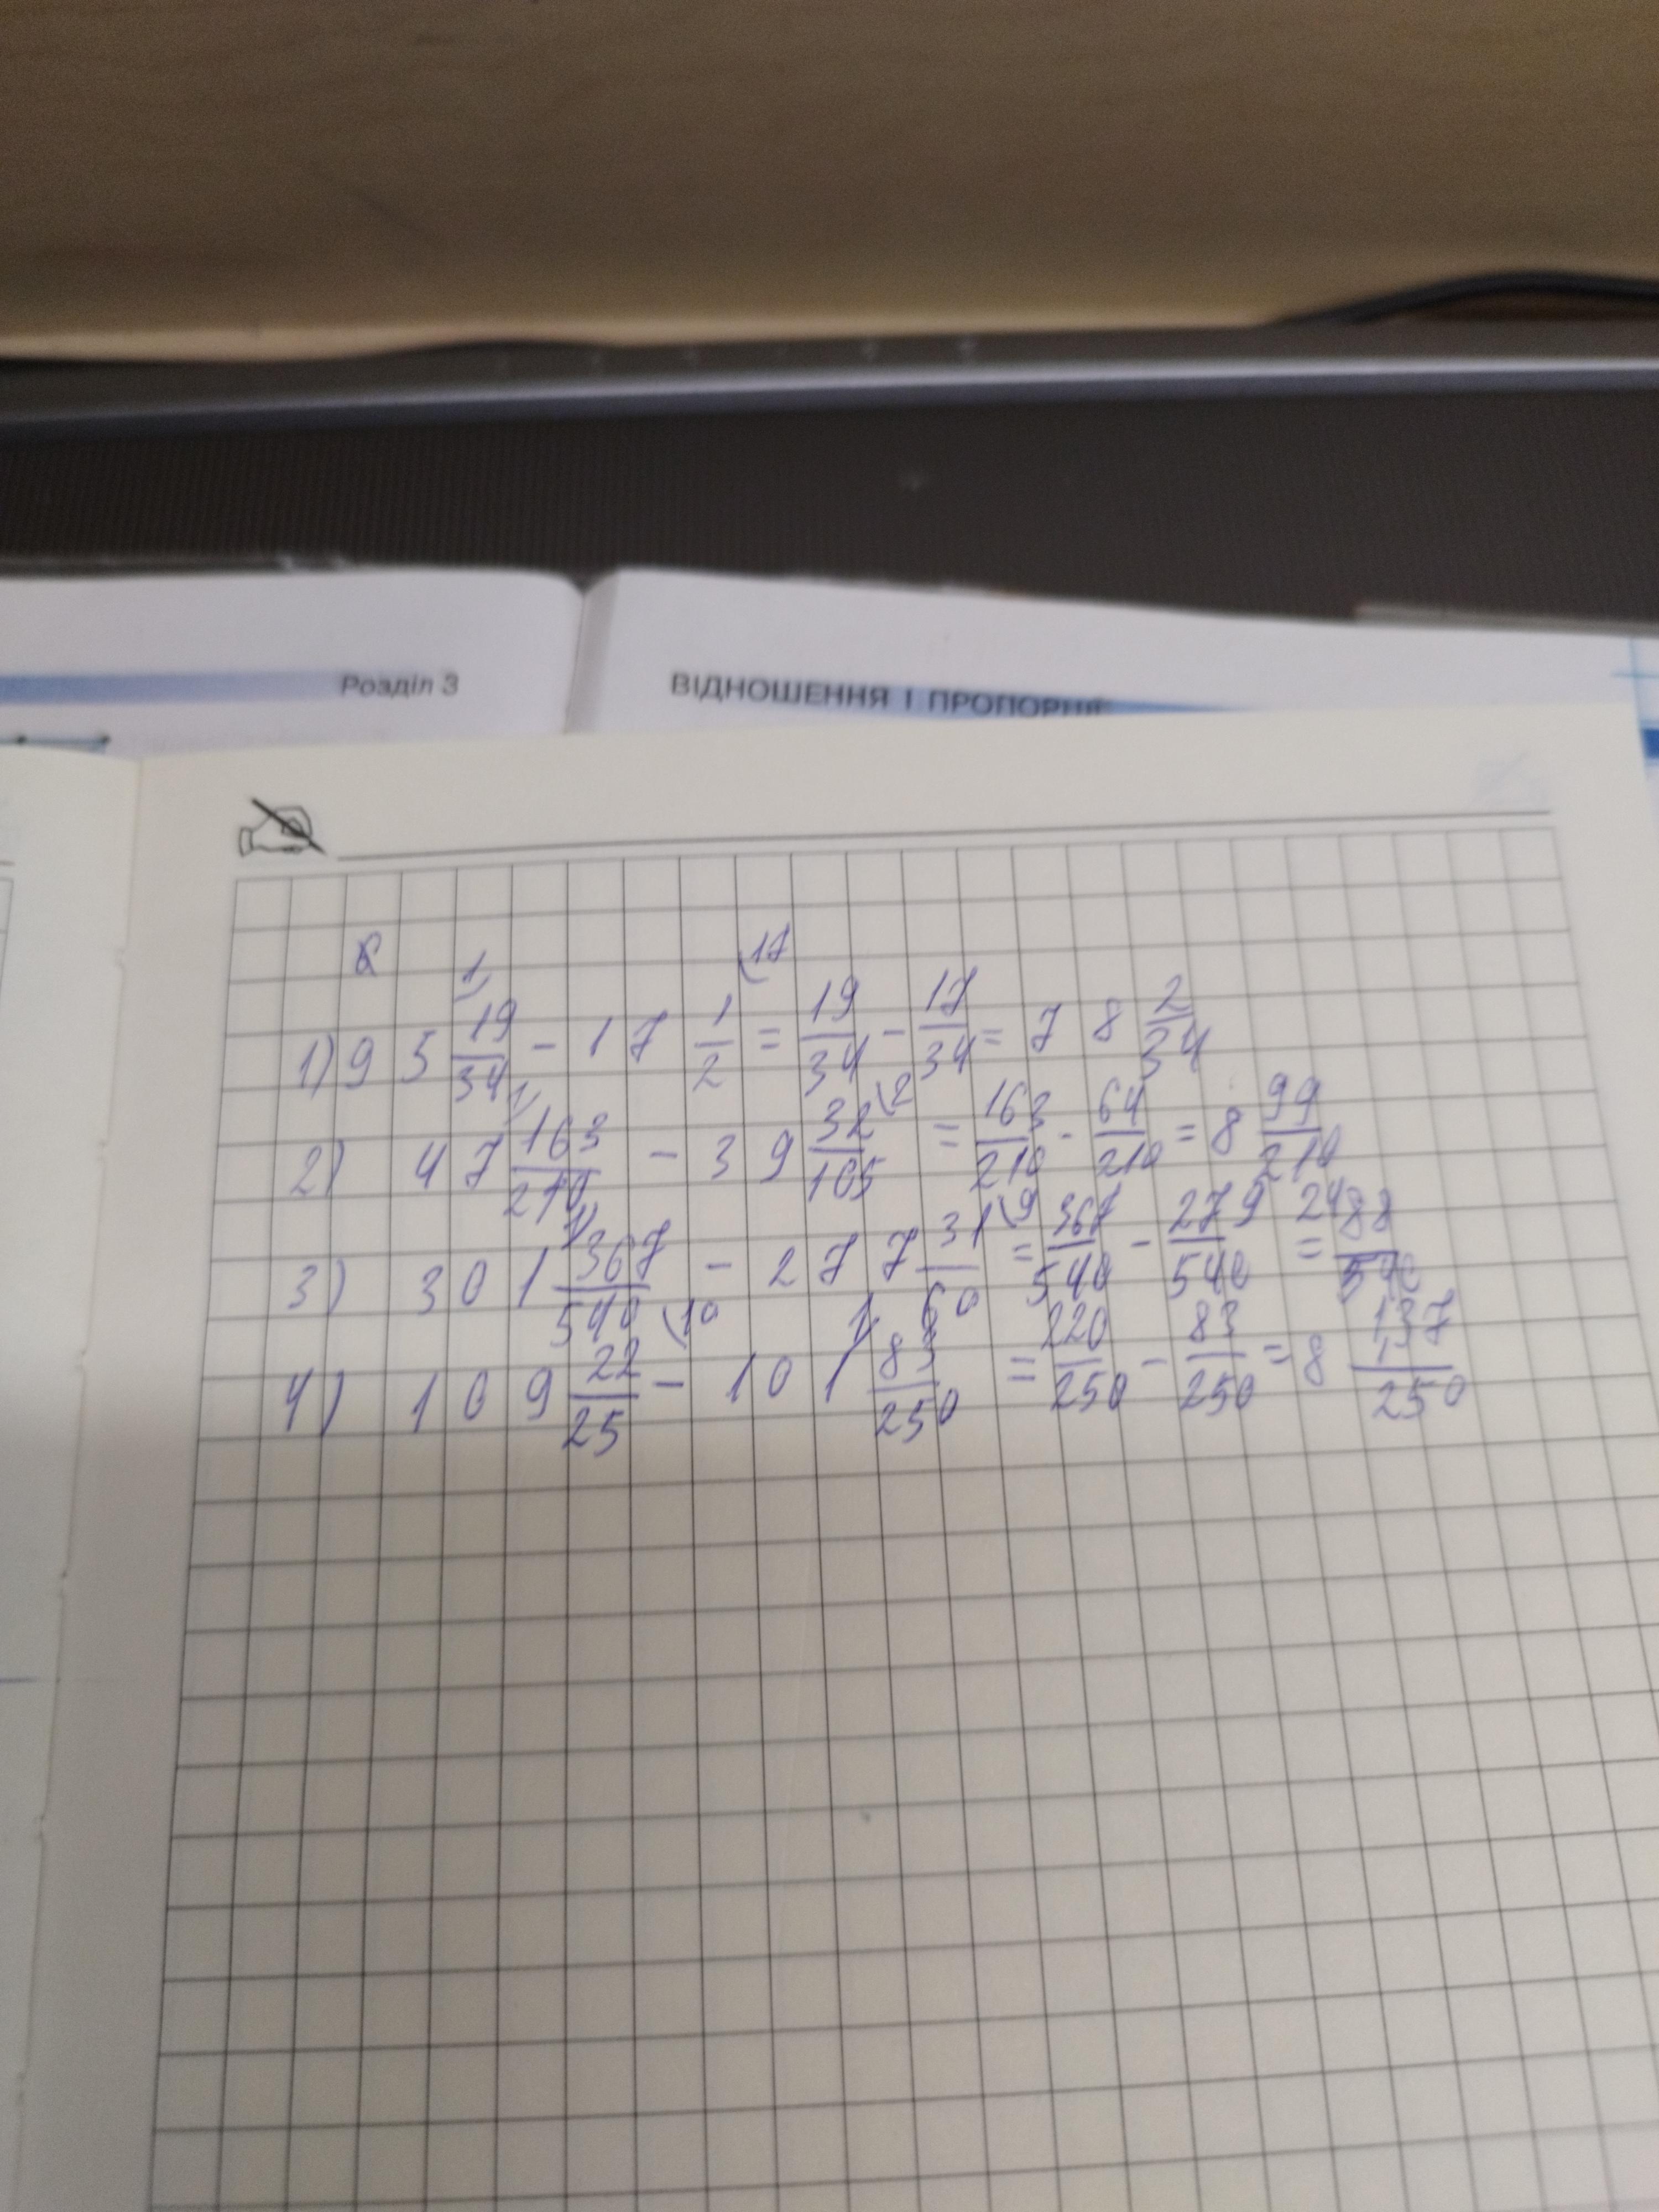 Розділ 3
ВІДНОШЕННЯ І ПРОПОРЦІЇ
1) 95 19/34 - 17 1/2 = 19/34 - 17/34 = 78 2/34
2) 47 163/210 - 39 32/105 = 163/210 - 64/210 = 8 99/210
3) 301 367/540 - 277 31/60 = 367/540 - 279/540 = 24 88/540
4) 109 22/25 - 101 83/250 = 220/250 - 83/250 = 8 137/250